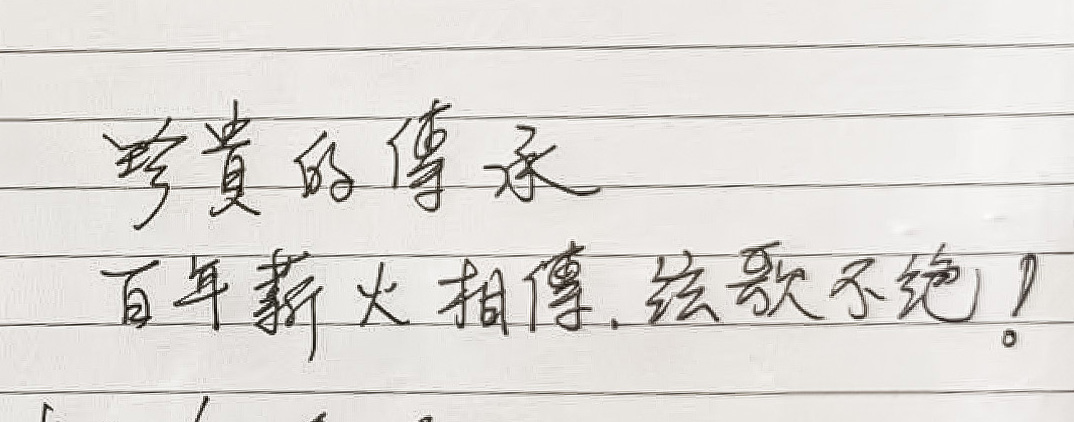 珍貴的傳承
百年薪火相傳.絃歌不絶!